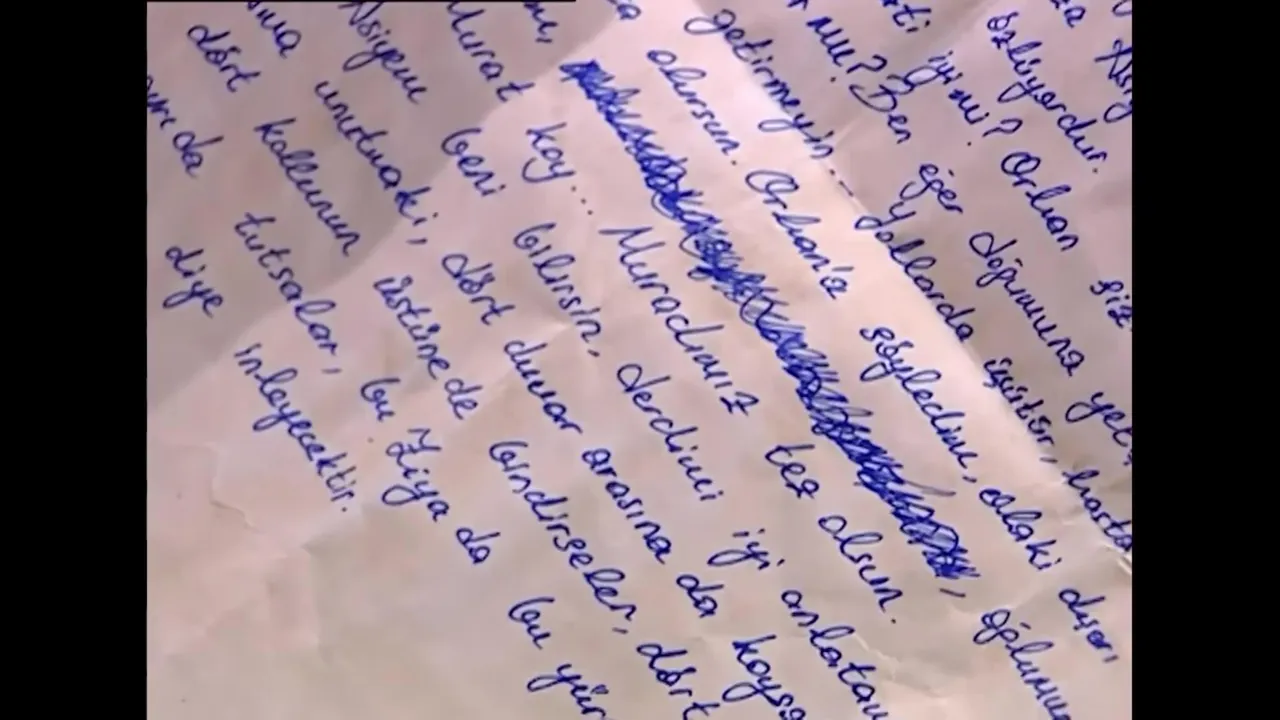 özlüyordur.
iyi mi? Orhan siz
mu? Ben eğer doğumuna
getirmeyin... yollarda üşütür, hasta
olursun. Orhan'a söyledim, olaki dışarı
oğlumun
Murat koy... Muradımız tez olsun.
Asiyem beni bilirsin, derdimi iyi
unutmaki, dört duvar arasına da
dört kollunun üstüne de bindirseler, dört
tutsalar, bu Ziya da bu
diye inleyecektir.